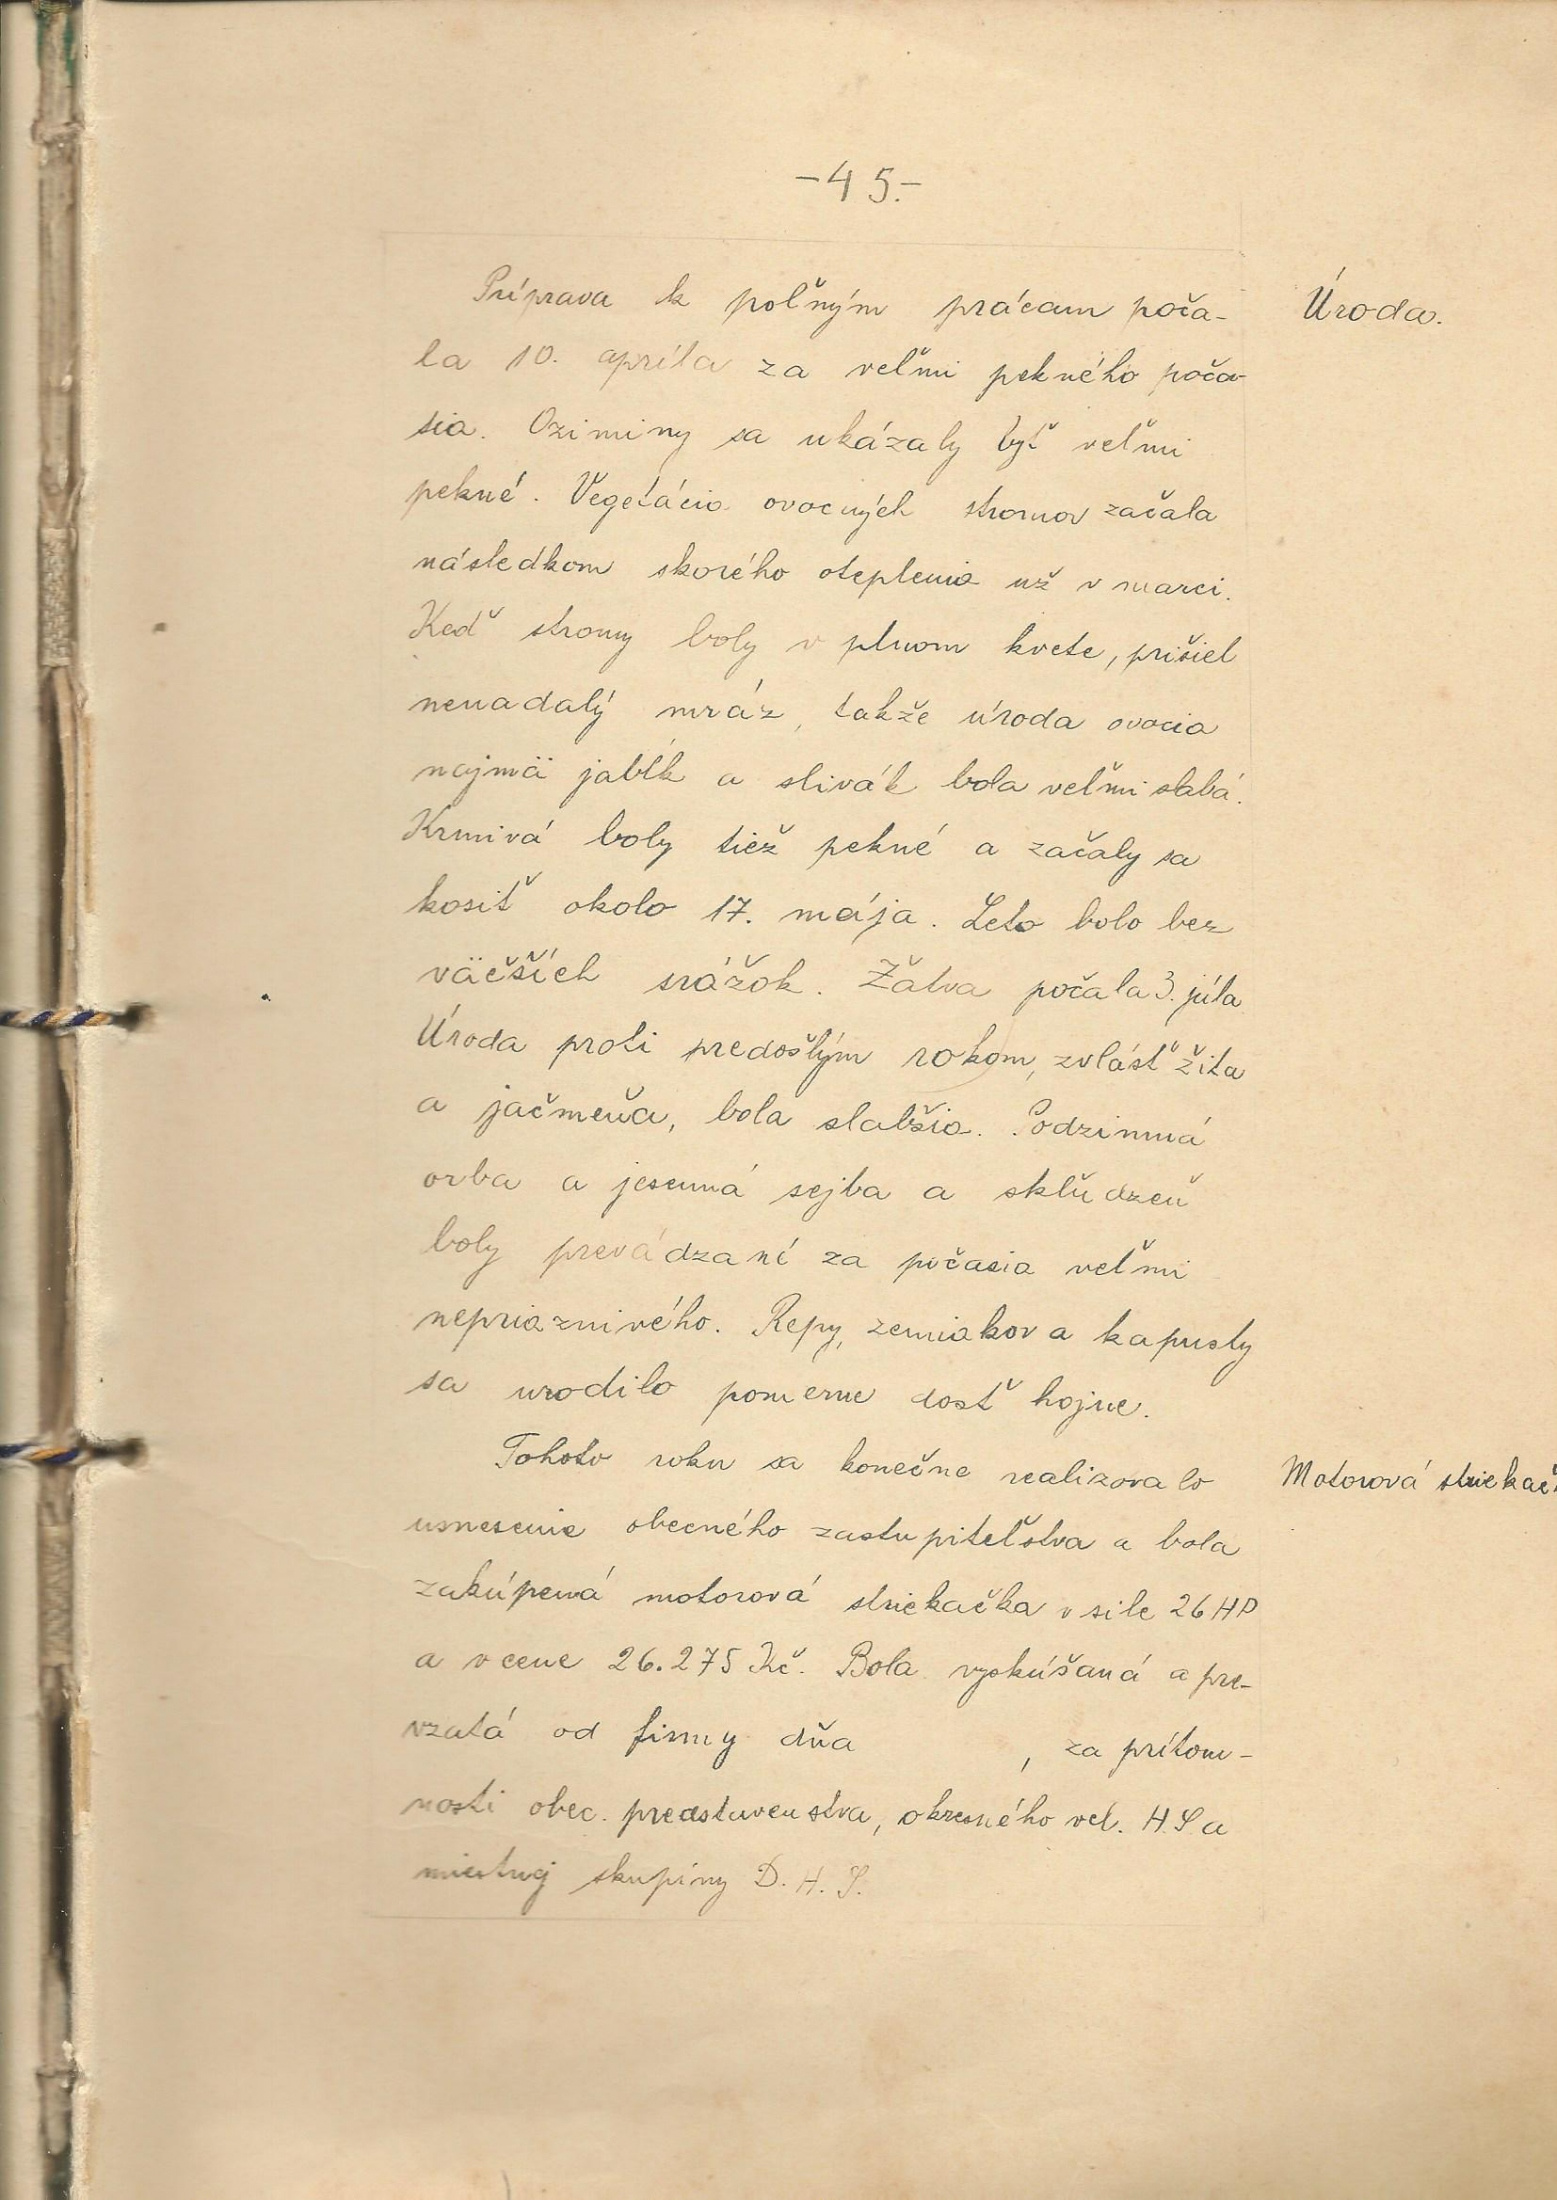 -45.-
Príprava k poľným prácam poča-
la 10. apríla za veľmi pekného poča-
sia. Oziminy sa ukázaly byť veľmi
pekné. Vegetácia ovocných stromov začala
následkom skorého oteplenia už v marci.
Keď stromy boly v plnom kvete, prišiel
nenadalý mráz, takže úroda ovocia
najmä jabĺk a slivák bola veľmi slabá.
Krmivá boly tiež pekné a začaly sa
kosiť okolo 17. mája. Leto bolo bez
väčších srážok. Žatva počala 3. júla
Úroda proti predošlým rokom, zvlášť žita
a jačmeňa, bola slabšia. Podzimná
orba a jesenná sejba a skľudzeň
boly prevádzaní za počasia veľmi
nepriaznivého. Repy, zemiakov a kapusty
sa urodilo pomerne dosť hojne.
Tohoto roku sa konečne realizovalo
usnesenie obecného zastupiteľstva a bola
zakúpená motorová striekačka v sile 26 HP
a v cene 26.275 Kč. Bola vyskúšaná a pre-
vzatá od firmy dňa , za prítom-
nosti obec. predstavenstva, okresného vel. H.S. a
miestnej skupiny D. H. S.
Úroda.
Motorová striekač